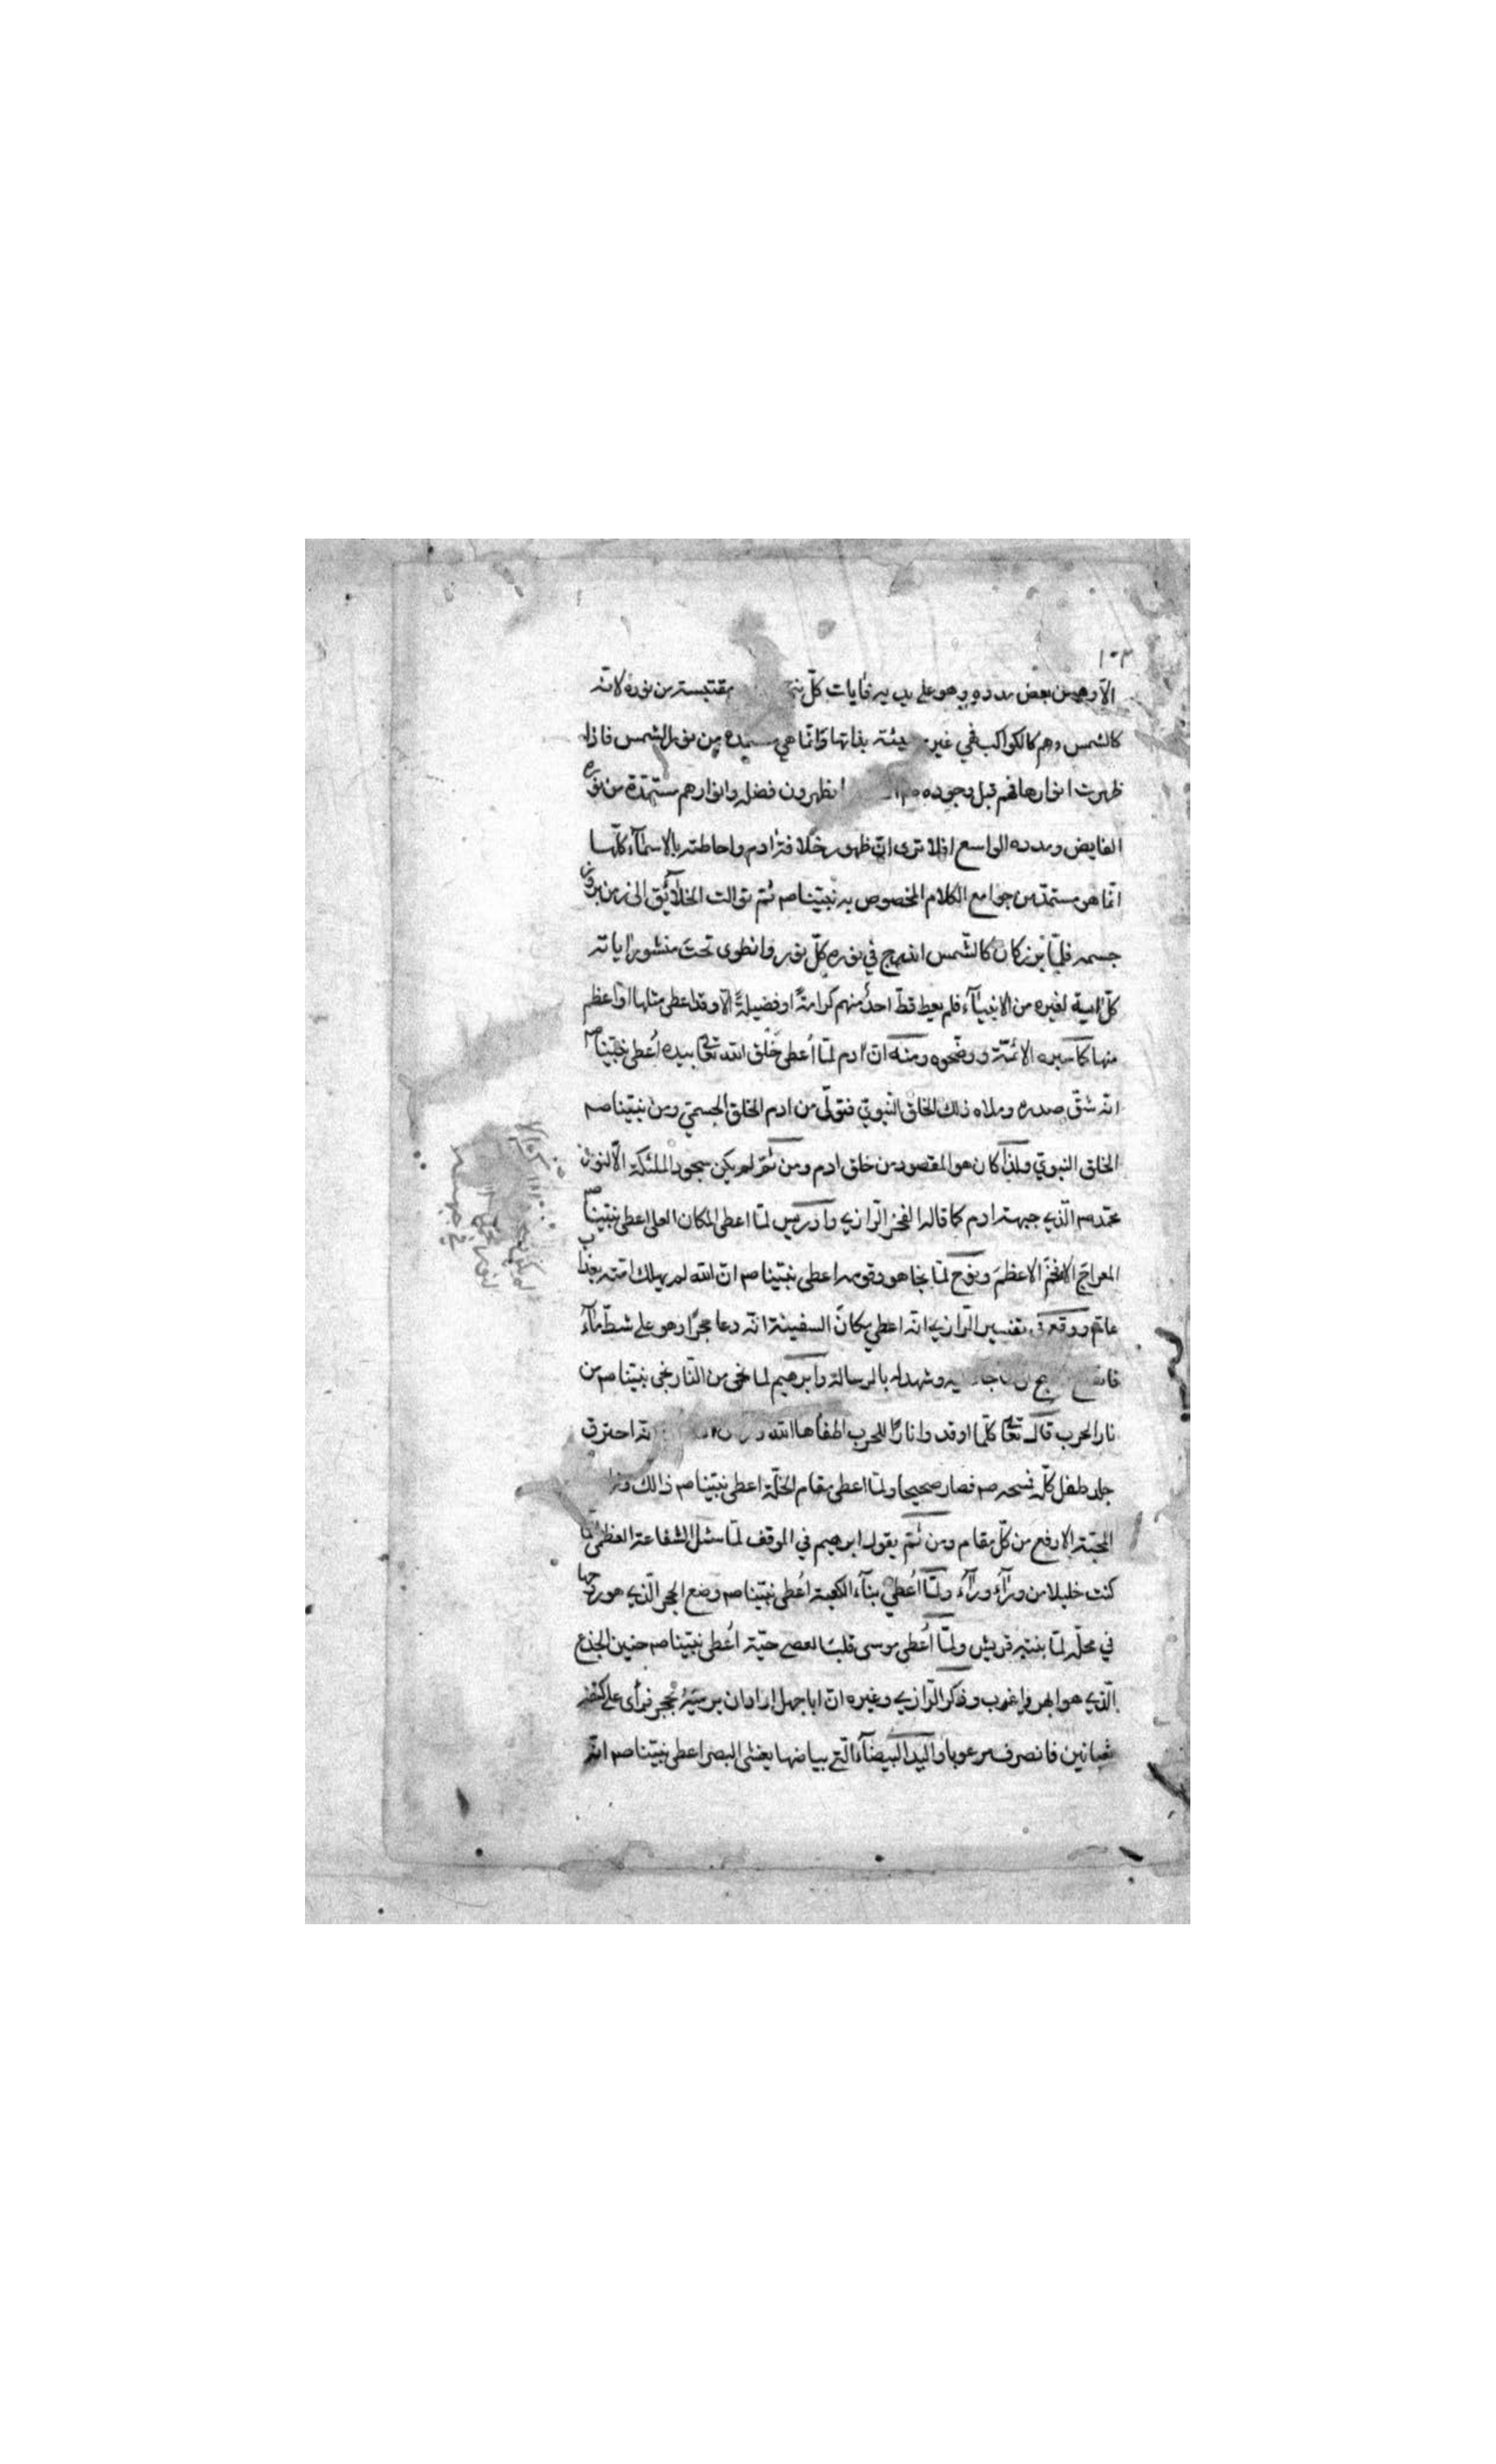 ١٠٣
الّا وهو من بعض مدده وهو على يديه فايات كلّ مقتبسة من نوره لانّه
كالشمس وهم كالكواكب فهي غير بذاتها وانّما هي من نور الشمس فاذا
ظهرت انوارها فهم قبل وجوده يظهرون فضله وانوارهم مستمدّة من نوره
الفايض ومدده الواسع افلا ترى انّ ظهور خلافة ادم واحاطته بالاسمآء كلّها
انّما هو مستمدّ من جوامع الكلام المخصوص به نبيّنا صم ثم توالت الخلآئق الى زمن بروز
جسمه فلمّا برز كان كالشّمس اندرج في نوره كلّ نور وانطوى تحت منشور اياته
كلّ اية لغيره من الانبيآء فلم يعط قطّ احدٌ منهم كرامةً او فضيلةً الّا وقد اعطى مثلها او اعظم
منها كما الائمّة ووضّحوه ومنه انّ ادم لمّا أعطى خلق الله تعا بيده أعطى نبيّنا صم
انّه شقّ صدره وملاه ذلك الخلق النّبويّ فتولّى من ادم الخلق الجسميّ ومن نبيّنا صم
الخلق النبويّ ولذا كان هو المقصود من خلق ادم ومن ثمّ لم يكن سجود الملئكة الّا لنور
محمّد صم الّذي جبهة ادم كما قاله الفخر الرّازي وادريس لمّا اعطى المكان العلى اعطى نبيّنا صم
المعراج الافخم الاعظم ونوح لمّا نجا هو وقومه اعطى نبيّنا صم انّ الله لم يهلك امّته بعذاب
عامّ ووقع في تفسير الرّازي انّه اعطى مكان السفينة انّه دعا حجرًا وهو على شطّ مآء
وشهد له بالرسالة وابرهيم لما نجى من النّار نجى نبيّنا صم من
نار الحرب قال تعا كلّما اوقدوا نارًا للحرب اطفأها الله احترق
جلد طفل كلّه فمسحه صم فصار صحيحا ولمّا اعطى مقام الخلّة اعطى نبيّنا صم ذالك
المحبّة الارفع من كلّ مقام ومن ثمّ يقول ابرهيم في الموقف لمّا سئل الشفاعة العظمى انّما
كنت خليلا من ورآء ورآء ولمّا أعطى بنآء الكعبة اعطى نبيّنا صم وضع الحجر الّذي هو روحها
في محلّه لمّا بنته قريش ولمّا أعطى موسى قلب العصى حيّة أعطى نبيّنا صم حنين الجذع
الّذي هو ابهر واغرب وذكر الرّازي وغيره انّ اباجهل اراد ان يرميه بحجر فرأى على كتفيه
ثعبانين فانصرف مرعوبا واليد البيضآء الّتي بياضها يغشى البصر اعطى نبيّنا صم انّه